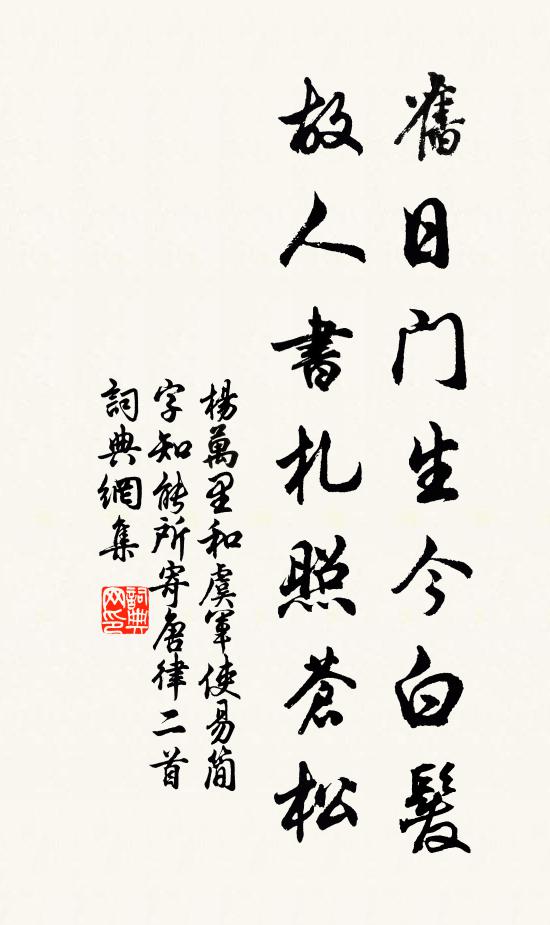 舊日門生今白髮
故人書札照蒼松
楊萬里和虞軍使易簡
字知能所寄唐律二首
詞典網集
詞典
网印